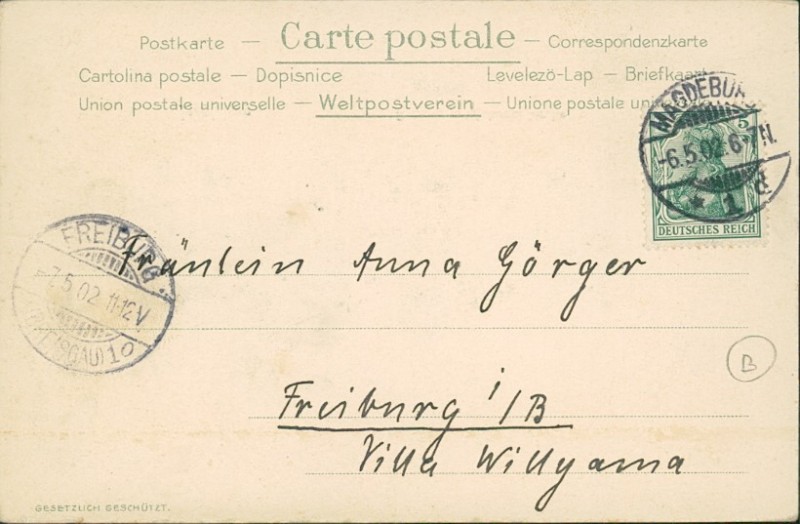 Postkarte — Carte postale — Correspondenzkarte
Cartolina postale — Dopisnice Levelezö-Lap — Briefkaart
Union postale universelle — Weltpostverein — Unione postale
MAGDEBURG
-6.5.02.6-7N.
* 1 d
5
DEUTSCHES REICH
FREIBURG
7.5.02 11-12V
(BREISGAU) 1 o
Fräulein Anna Görger
B
Freiburg i/B
Villa Willyama
GESETZLICH GESCHÜTZT.